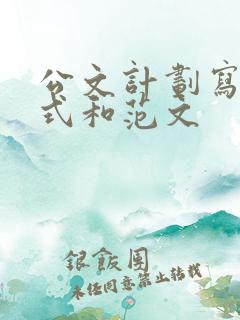 公文計劃寫
式和范文
銀飯團
未任同意禁止转载